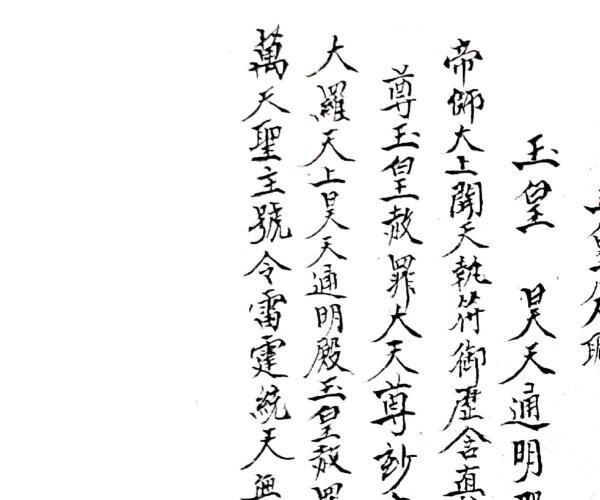 玉皇
玉皇 昊天通明
帝師大上開天執符御歷含真
尊玉皇赦罪大天尊妙
大羅天上昊天通明殿玉皇赦罪
萬天聖主號令雷霆統天無